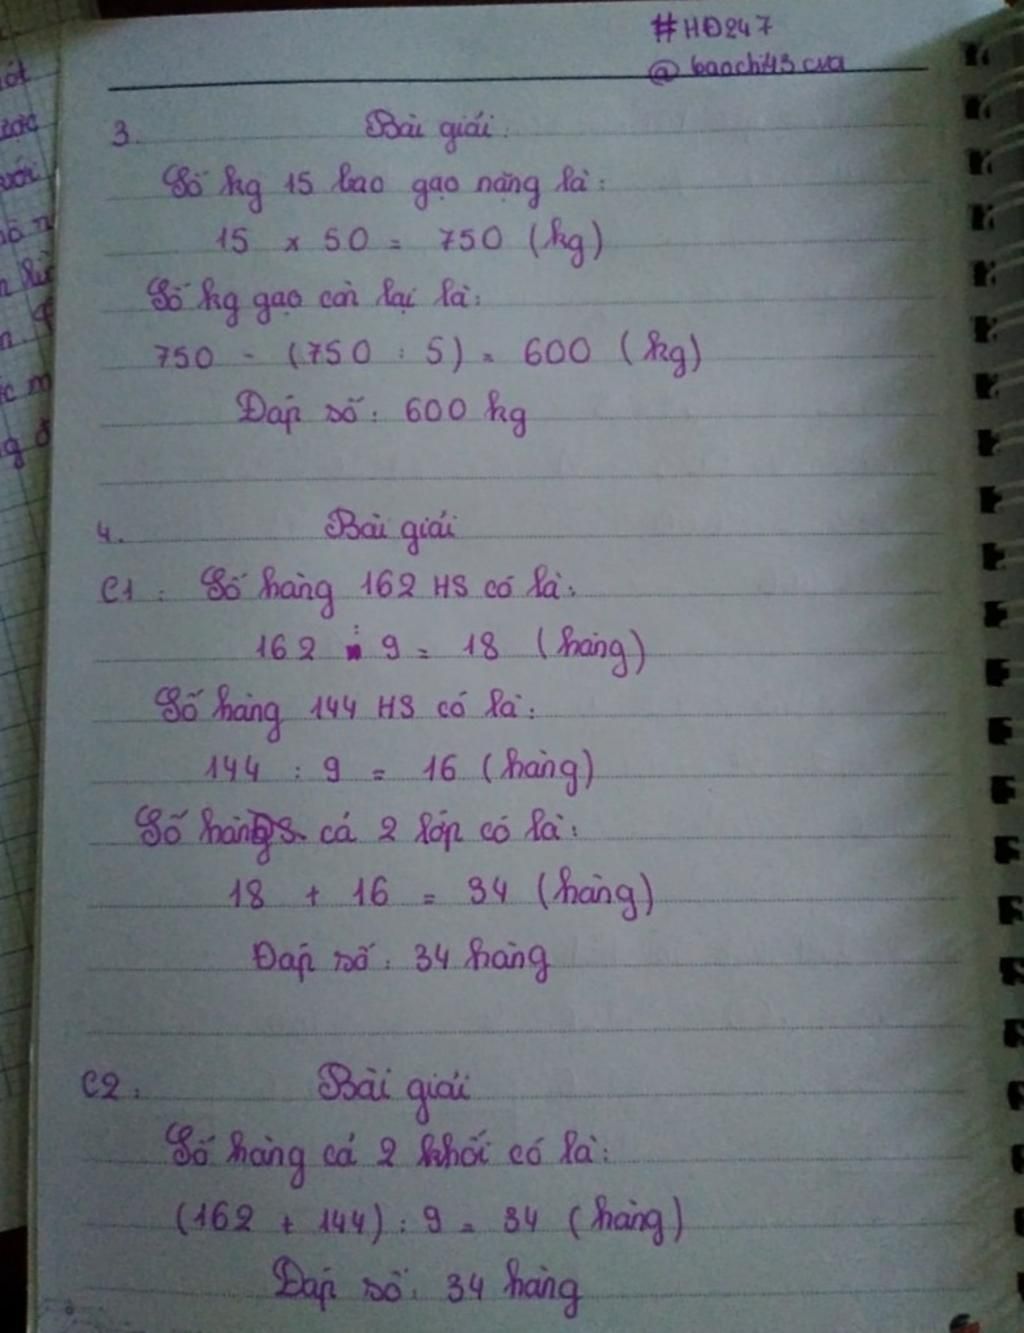 #HĐ247
@baochi43.cva
3. Bài giải:
Số kg 15 bao gạo nặng là:
15 x 50 = 750 (kg)
Số kg gạo còn lại là:
750 - (750 : 5) = 600 (kg)
Đáp số: 600 kg
4. Bài giải
C1: Số hàng 162 HS có là:
162 : 9 = 18 (hàng)
Số hàng 144 HS có là:
144 : 9 = 16 (hàng)
Số hàng cả 2 lớp có là:
18 + 16 = 34 (hàng)
Đáp số: 34 hàng
C2: Bài giải
Số hàng cả 2 khối có là:
(162 + 144) : 9 = 34 (hàng)
Đáp số: 34 hàng